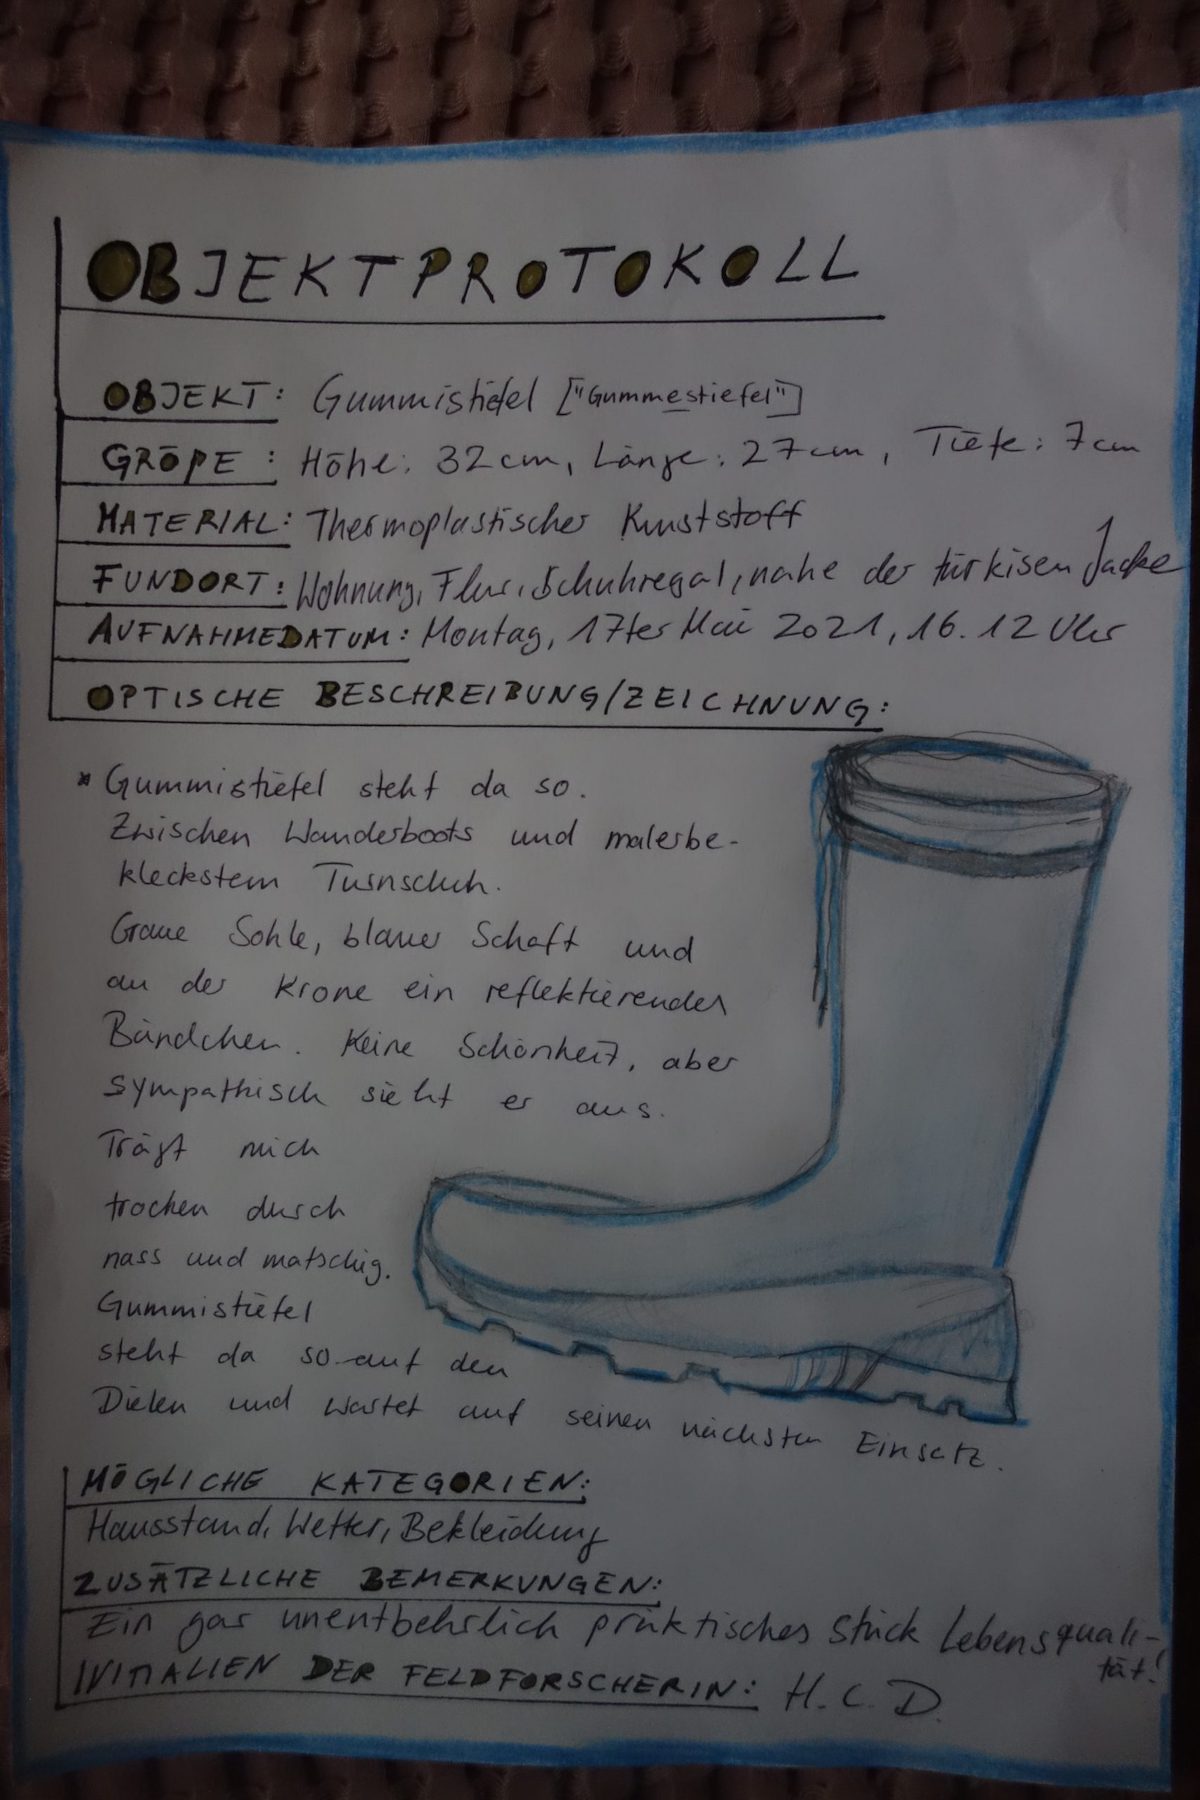 OBJEKTPROTOKOLL
OBJEKT: Gummistiefel ["Gummestiefel"]
GRÖßE: Höhe: 32cm, Länge: 27cm, Tiefe: 7cm
MATERIAL: Thermoplastischer Kunststoff
FUNDORT: Wohnung, Flur, Schuhregal, nahe der türkisen Jacke
AUFNAHMEDATUM: Montag, 17ter Mai 2021, 16.12 Uhr
OPTISCHE BESCHREIBUNG/ZEICHNUNG:
* Gummistiefel steht da so.
Zwischen Wanderboots und malerbe-
kleckstem Turnschuh.
Graue Sohle, blauer Schaft und
an der Krone ein reflektierendes
Bändchen. Keine Schönheit, aber
sympathisch sieht er aus.
Trägt mich
trocken durch
nass und matschig.
Gummistiefel
steht da so auf den
Dielen und wartet auf seinen nächsten Einsatz.
MÖGLICHE KATEGORIEN:
Hausstand, Wetter, Bekleidung
ZUSÄTZLICHE BEMERKUNGEN:
Ein gar unentbehrlich praktisches Stück Lebensquali-
tät!
INITIALIEN DER FELDFORSCHERIN: H.C.D.